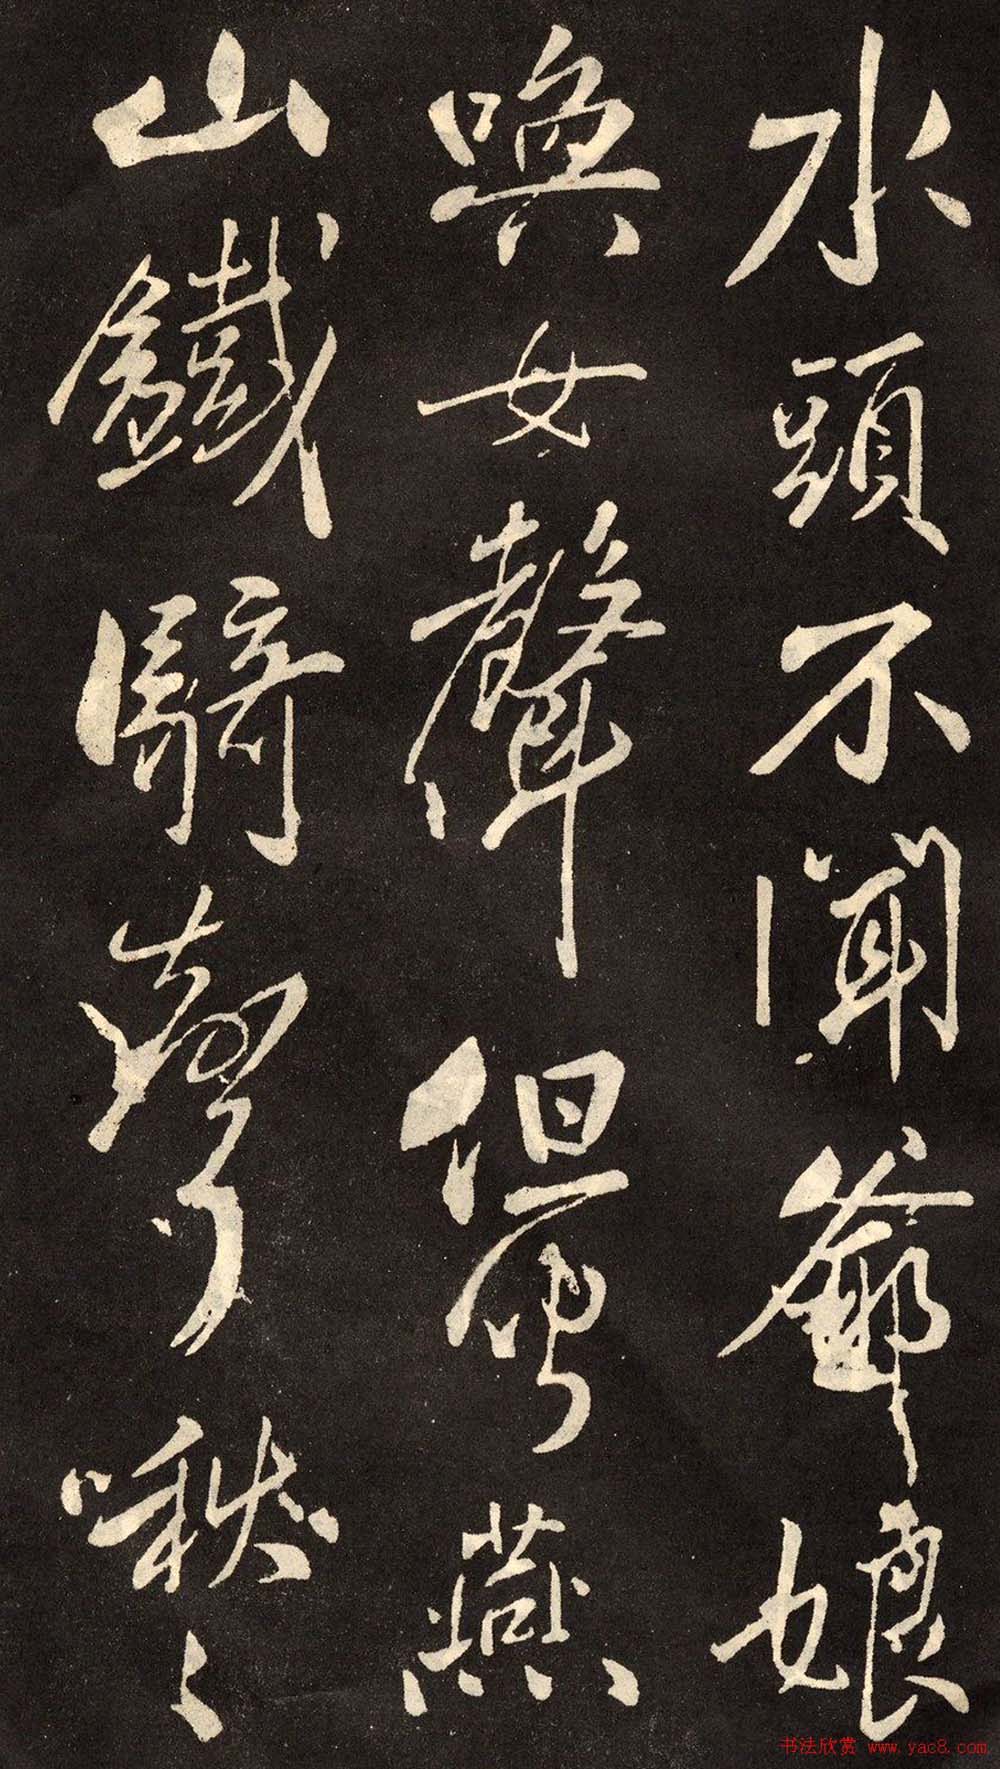 水頭不聞爺娘
喚女聲但聞燕
山鐵騎聲啾々
书法欣赏 www.yac8.com